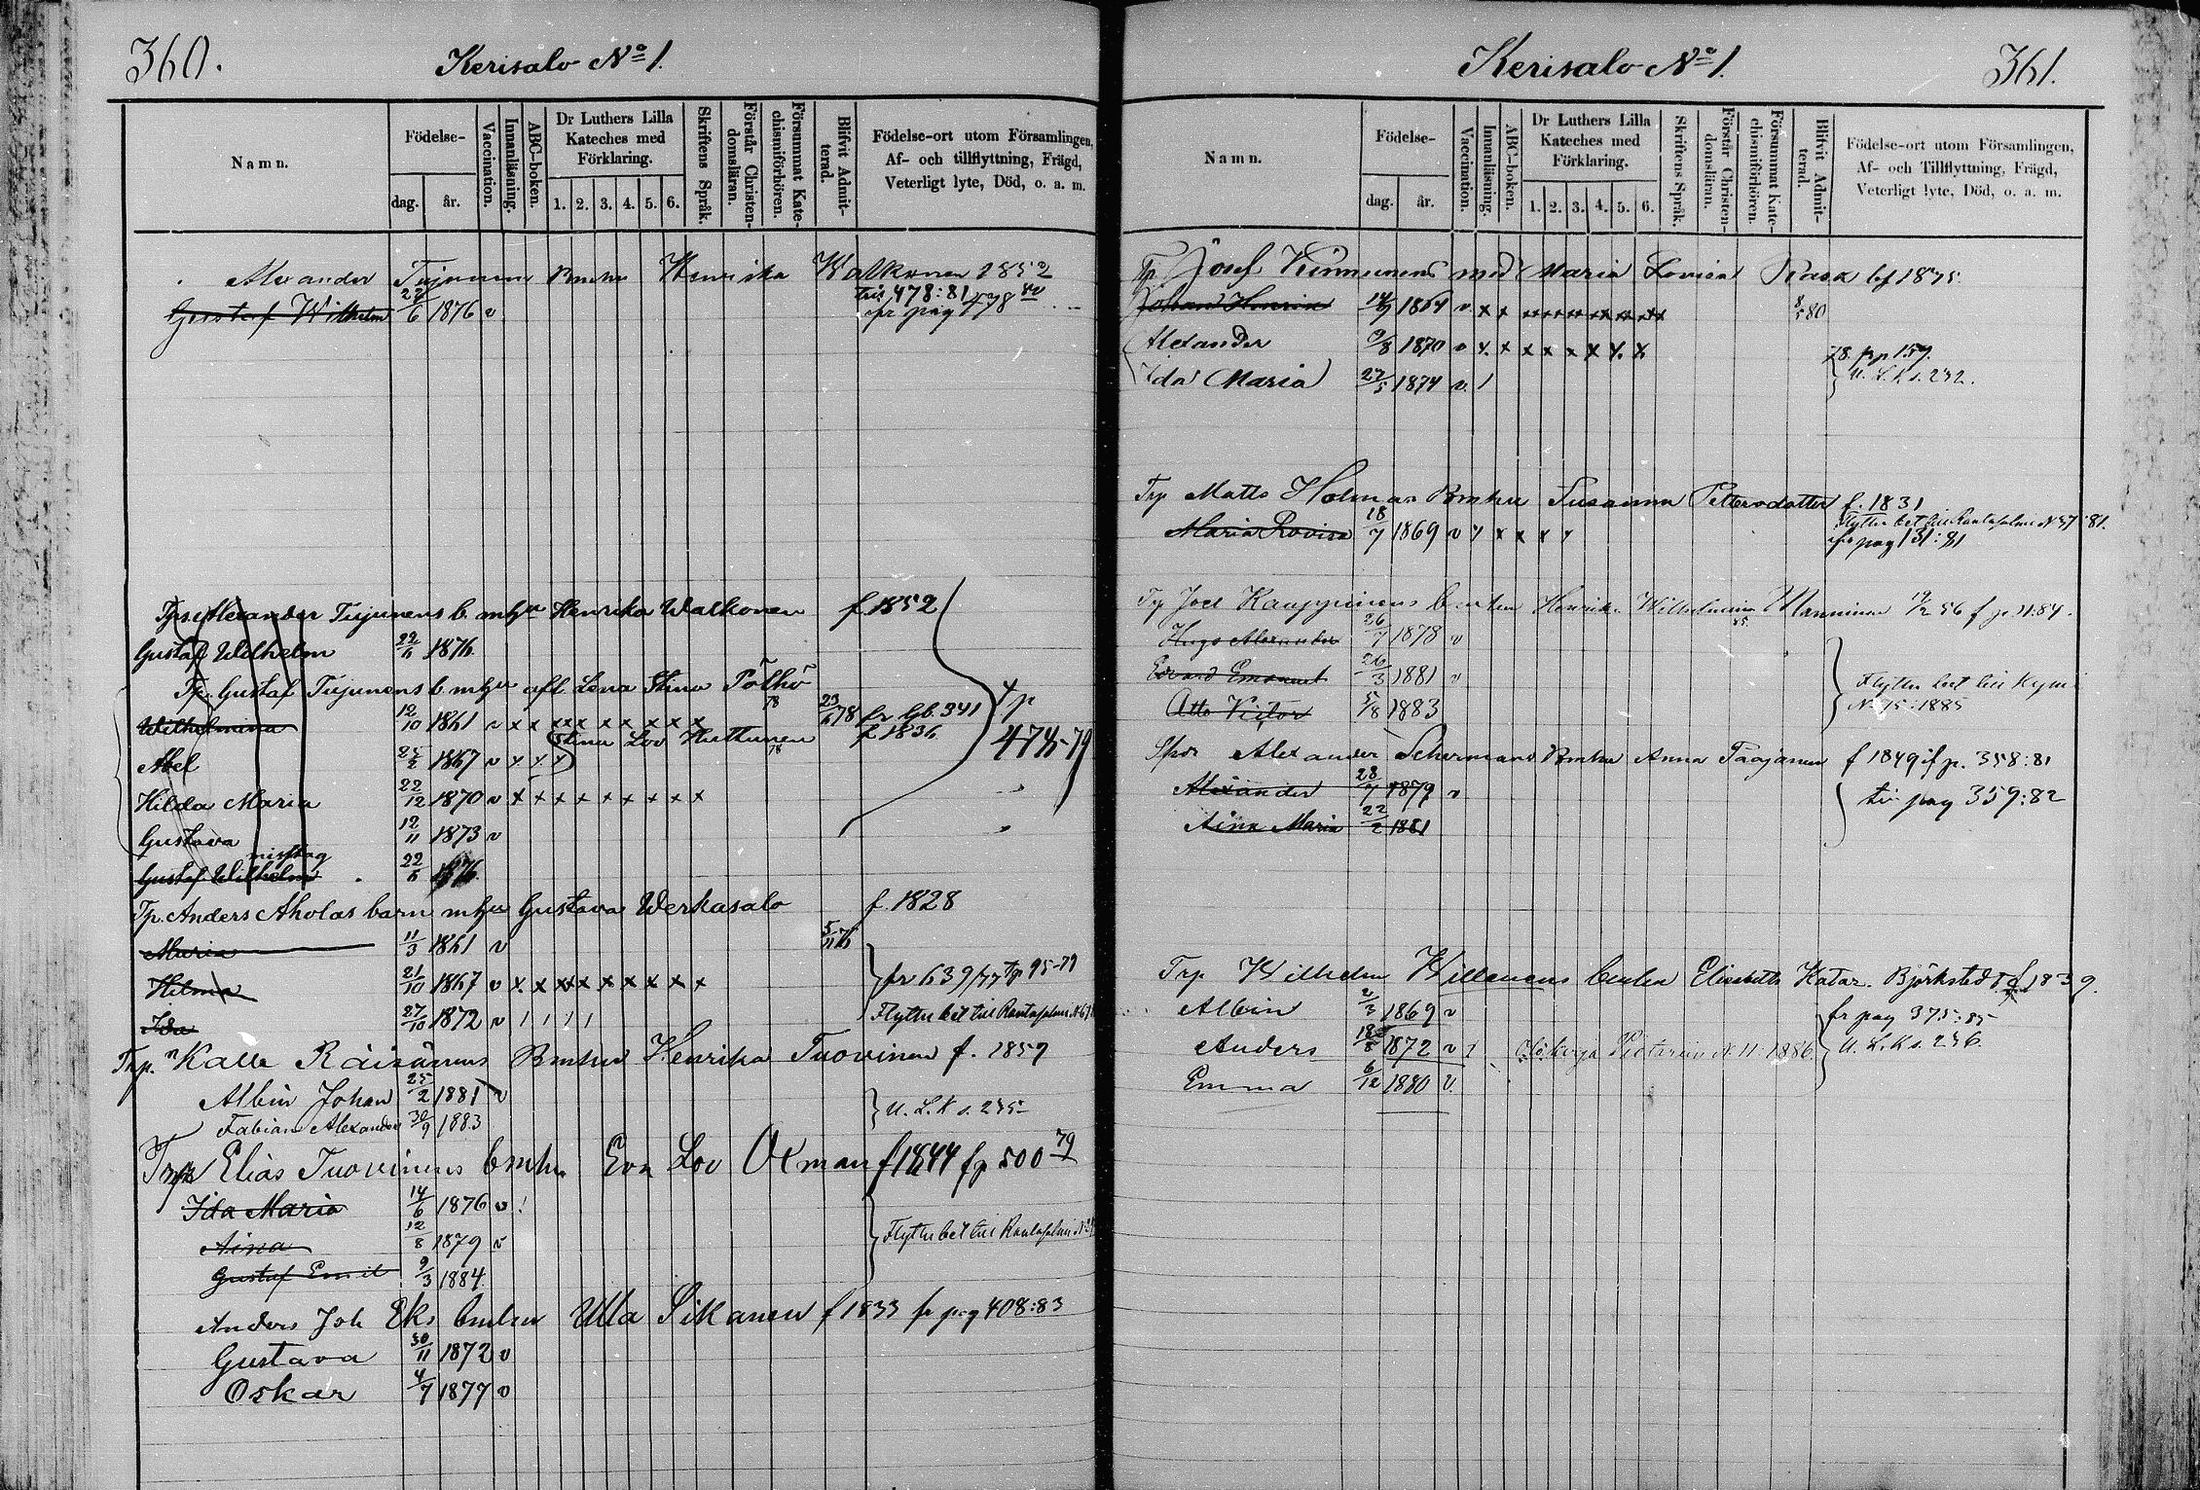 360.
Kerisalo No 1.
Namn.
Födelse-
dag.
år.
Vaccination.
Innanläsning.
ABC-boken.
Dr Luthers Lilla
Kateches med
Förklaring.
1. 2. 3. 4. 5. 6.
Skriftens Språk.
Förstår Christen-
domsläran.
Försummat Kate-
chismiförhören.
Blifvit Admit-
terad.
Födelse-ort utom Församlingen,
Af- och tillflyttning, Frägd,
Veterligt lyte, Död, o. a. m.
Alexander Tujunens Henrika Walkonen 1852
478:81
Gustaf Wilhelm 22/6 1876 v pag 478
Alexander Tujunens b mhu Henrika Walkonen f 1852
Gustaf Wilhelm 22/6 1876
Tp. Gustaf Tujunens b mhu afl Lena Stina Pölhö
Wilhelmina 12/10 1861 v x x x x x x x x x 23/6 78 fr Lb. 341
Stina Lov Huttunen 78 f 1836
474-79
Abel 25/2 1867 v x x x
Hilda Maria 22/12 1870 v x x x x x x x x x
Gustava 12/11 1873 v
misstag
Gustaf Wilhelm 22/6 1876
Tp. Anders Aholas barn mhu Gustava Werkasalo f 1828
Maria 11/3 1861 v
Hilma 21/10 1867 v x x x x x x x x x fr 639/77 tp 95-79
Ida 27/10 1872 v / / / / Flyttn bet till Rantasalmi
Trp. Kalle Räisänens Bmhu Henrika Tuovinen f. 1857
Albin Johan 25/2 1881 v
U. L. K s. 235
Fabian Alexander 30/9 1883
Elias Tuovinens bmhu Eva Lov Oxman f 1844 fp 500 79
Ida Maria 14/6 1876 v /
Aina 12/8 1879 v Flyttn bet till Rantasalmi
Gustaf Emil 9/3 1884.
Anders Joh Eks bmhu Ulla Sikanen f 1833 fr pag 408:83
Gustava 30/11 1872 v
Oskar 4/7 1877 v
Kerisalo No 1.
361.
Namn.
Födelse-
dag.
år.
Vaccination.
Innanläsning.
ABC-boken.
Dr Luthers Lilla
Kateches med
Förklaring.
1. 2. 3. 4. 5. 6.
Skriftens Språk.
Förstår Christen-
domsläran.
Försummat Kate-
chismiförhören.
Blifvit Admit-
terad.
Födelse-ort utom Församlingen,
Af- och Tillflyttning, Frägd,
Veterligt lyte, Död, o. a. m.
Tp. Josef Kinnunens med Maria Lovisa Rask 1875
Johan Henrik 1864 v x x x x x x x x x 8/5 80
Alexander 9/8 1870 v x x x x x x x
78. fr p 159.
Ida Maria 27/5 1874 v / U. L. K s. 232.
Trp Matts Holmas Bmhu Susanna Pettersdotter f. 1831
Flyttn bet till Rantasalmi N 37:81.
Maria Lovisa 18/7 1869 v x x x x pag 131:81
Tp Joel Kauppinens bmhu Henrika Wilhelmina Manninen 19/2 56 f p. 11:84.
Hugo Alexander 26/7 1878 v
Edvard Emanuel 26/3 1881 v Flyttn bet till Kymi
Otto Victor 5/8 1883 N 15:1885
Alexander Schermans Bmhu Anna Taajanen f 1849 if p. 358:81
Alexander 28/7 1879 v till pag 359:82
Aina Maria 22/2 1881
Trp Wilhelm Willmans bmhu Elisabeth Katar. Björkstedt f 1839.
Albin 2/3 1869 v fr pag 375:85
Anders 18/8 1872 v / N 11:1886 U. L. K s. 236.
Emma 6/12 1880 v.